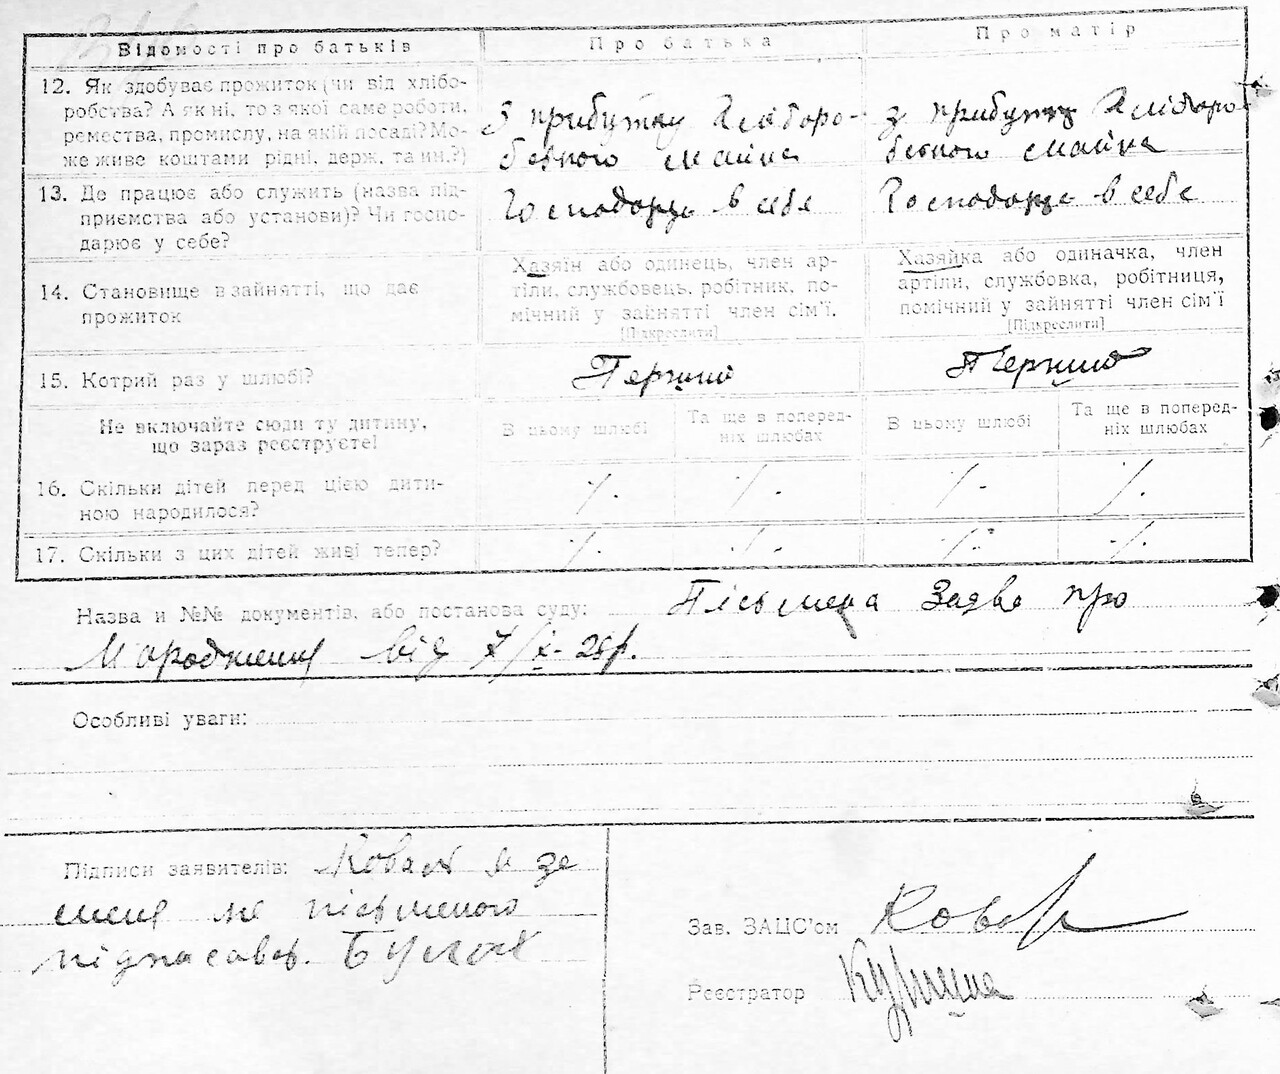 Відомості про батьків
Про батька
Про матір
12. Як здобуває прожиток (чи від хлібо-
робства? А як ні, то з якої саме роботи,
ремества, промислу, на якій посаді? Мо-
же живе коштами рідні, держ. та ин.?)
З прибутку Хліборо-
бского майна
з прибутку Хліборо
бского майна
13. Де працює або служить (назва під-
приємства або установи)? Чи госпо-
дарює у себе?
Господарце в себе
Господарце в себе
14. Становище в зайнятті, що дає
прожиток
Хазяїн або одинець, член ар-
тіли, службовець, робітник, по-
мічний у зайнятті член сім'ї.
[Підкреслити]
Хазяйка або одиначка, член
артіли, службовка, робітниця,
помічний у зайнятті член сім'ї
[Підкреслити]
15. Котрий раз у шлюбі?
Перший
Перший
Не включайте сюди ту дитину,
що зараз реєструєте!
В цьому шлюбі
Та ще в поперед-
ніх шлюбах
В цьому шлюбі
Та ще в поперед-
ніх шлюбах
16. Скільки дітей перед цією дити-
ною народилося?
17. Скільки з цих дітей живі тепер?
Назва и №№ документів, або постанова суду: Пісьмена Заява про
Народження від 7/X-26р.
Особливі уваги:
Підписи заявителів: за
мене не пісьменого
підписався
Зав. ЗАЦС'ом
Реєстратор